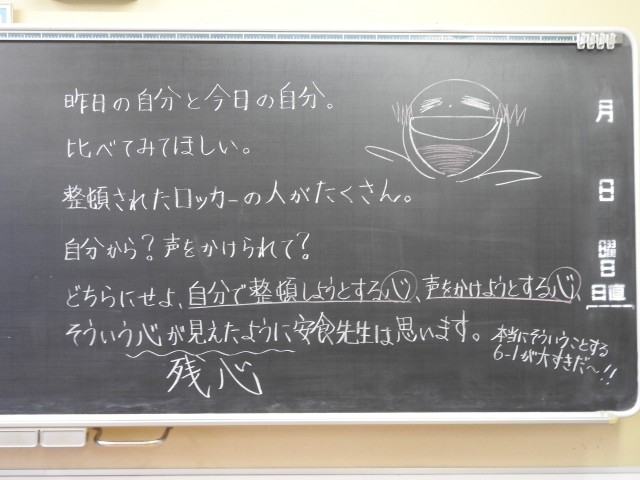 昨日の自分と今日の自分。
比べてみてほしい。
整頓されたロッカーの人がたくさん。
自分から？声をかけられて？
どちらにせよ、自分で整頓しようとする心、声をかけようとする心、
そういう心が見えたように安食先生は思います。
残心
本当にそういうことする
6-1が大すきだ〜!!
月
日
曜日
日直